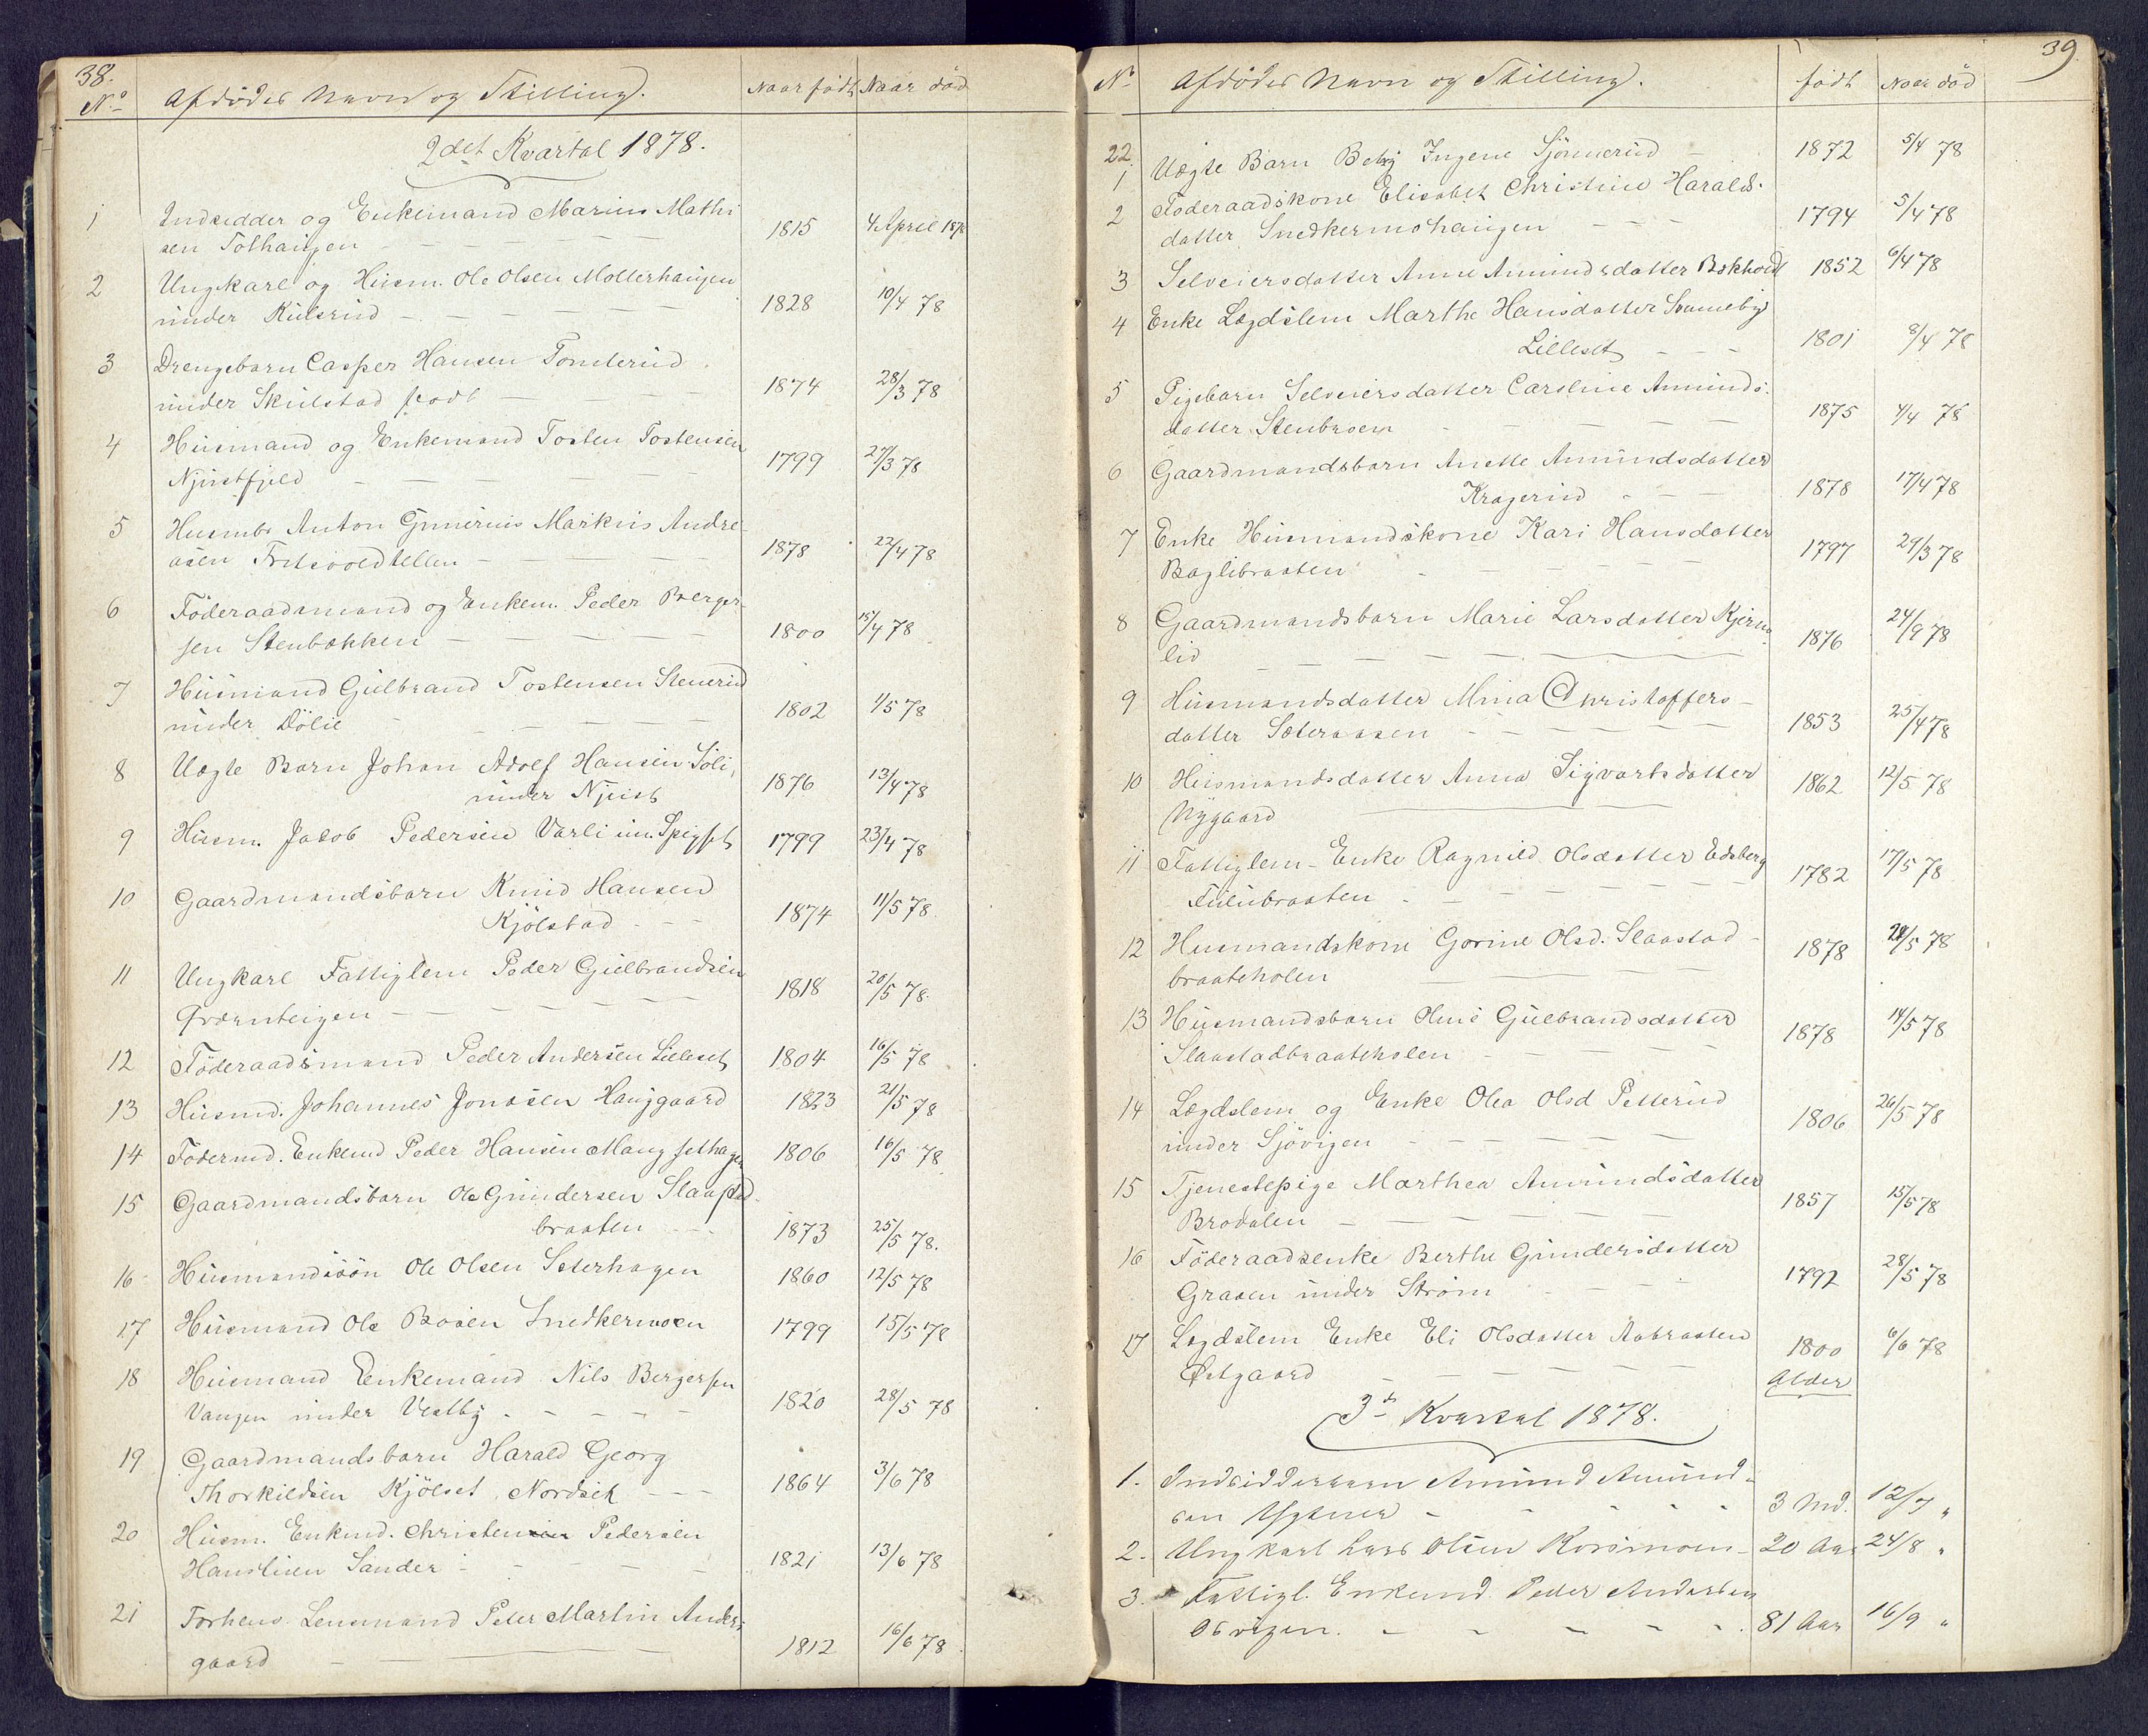 38.
No Afdødes Navn og Stilling. Naar født Naar død
2det Kvartal 1878.
1 Indsidder og Enkemand Marius Mathi
sen Tothaugen 1815 4 April 1878
2 Ungkarl og Husm. Ole Olsen Mollerhaugen
under Kulsrud 1828 10/4 78
3 Drengebarn Casper Hansen Tomterud
under Skulstad født 1874 28/3 78
4 Husmand og Enkemand Tosten Tostensen
Njustfjeld 1799 27/3 78
5 Husmbr Anton Gunerius Markus Andre-
asen 1878 22/4 78
6 Föderaadsmand og Enkem. Peder Berger-
sen Stenbækken 1800 15/4 78
7 Husmand Gulbrand Tostensen Stenerud
under Dölie 1802 1/5 78
8 Uægte Barn Johan Adolf Hansen Soli,
under Njust 1876 13/4 78
9 Husm. Jakob Pedersen Varli un. Spigset 1799 23/4 78
10 Gaardmandsbarn Knud Hansen
Kjölstad 1874 11/5 78
11 Ungkarl Fattiglem Peder Gulbrandsen
Qværnteigen 1818 20/5 78.
12 Föderaadsmand Peder Andersen Lilleset 1804 16/5 78
13 Husmd. Johannes Jonasen Haugaard 1823 21/5 78
14 Födermd. Enkemd Peder Hansen Mangsethagen 1806 16/5 78
15 Gaardmandsbarn Ole Gundersen Slaastad
braaten 1873 25/5 78.
16 Husmandssön Ole Olsen Seterhagen 1860 12/5 78
17 Husmand Ole Boesen Snedkermoen 1799 15/5 78
18 Husmand Enkemand Nils Bergersen
Vangen under Vestby 1820 28/5 78
19 Gaardmandsbarn Harald Georg
Thorkildsen Kjölset Nordseth 1864 3/6 78
20 Husm. Enkmd. Christen Pedersen
Hanslien Sander 1821 13/6 78
21 Forhens Lensmand Peter Martin Anders-
gaard 1812 16/6 78
39.
No Afdødes Navn og Stilling. født Naar död
22.
1 Uægte Barn Betzy Ingene Sjönnerud 1872 5/4 78
2 Föderaadskone Elisabet Christine Harals.
datter Snedkermohaugen 1794 5/4 78
3 Selveiersdatter Anne Amundsdatter 1852 6/4 78
4 Enke Lægdslem Marthe Hansdatter Svanneby
Lilleset 1801 8/4 78
5 Pigebarn Selveiersdatter Caroline Amunds.
datter Stenbroen 1875 4/4 78
6 Gaardmandsbarn Anette Amundsdatter
Kragerud 1878 17/4 78
7 Enke Husmandskone Kari Hansdatter
Baglibraaten 1797 29/3 78
8 Gaardmandsbarn Marie Larsdatter Kjerna
lid 1876 24/9 78
9 Husmandsdatter Mina Christoffers-
datter Sæteraasen 1853 25/4 78
10 Husmandsdatter Anna Sigvartsdatter
Nygaard 1862 12/5 78
11 Fattiglem-Enke Ragnild Olsdatter Edsberg
1782 17/5 78
12 Husmandskone Gorine Olsd. Slaastad-
braateholen 1878 28/5 78
13 Husmandsbarn Oline Gulbrandsdatter
Slaastadbraateholen 1878 14/5 78
14 Lægdslem og Enke Olea Olsd Petterud
under Sjövigen 1806 26/5 78
15 Tjenestepige Marthea Amundsdatter
Brodalen 1857 15/5 78
16 Föderaadsenke Berthe Gundersdatter
Grasen under Ström 1792 28/5 78
17 Lægdslem Enke Eli Olsdatter Aabraaten
Østgaard 1800 6/6 78
Alder
3die Kvartal 1878.
1. Indsidderbarn Amund Amund-
sen 3 Md. 12/7 "
2. Ungkarl Lars Olsen Korsmoen 20 Aar 24/8 "
3. Fattigl. Enkemd. Peder Andersen
Osvigen. 81 Aar 16/9 "